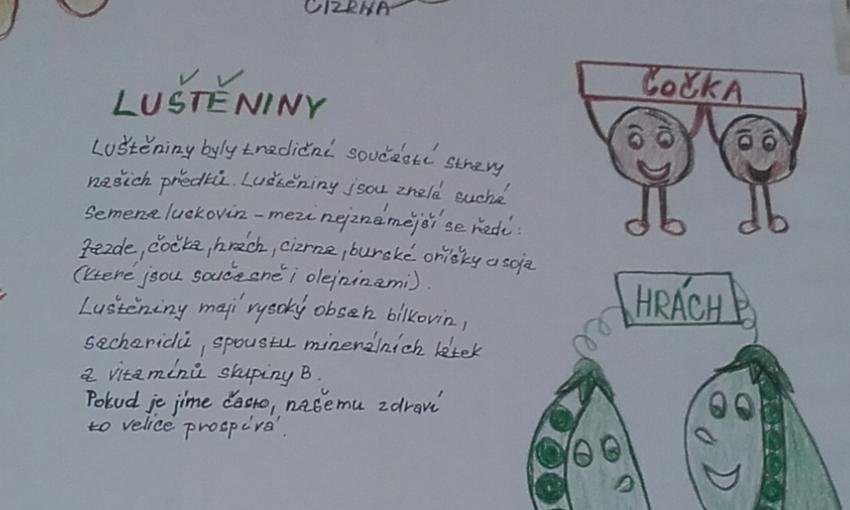 CIZRNA
LUŠTĚNINY
Luštěniny byly tradiční součástí stravy
našich předků. Luštěniny jsou zralá suchá
semena luskovin – mezi nejznámější se řadí:
fazole, čočka, hrách, cizrna, burské oříšky a soja
(které jsou současně i olejninami).
Luštěniny mají vysoký obsah bílkovin,
sacharidů, spoustu minerálních látek
a vitamínů skupiny B.
Pokud je jíme často, našemu zdraví
to velice prospívá.
ČOČKA
HRÁCH